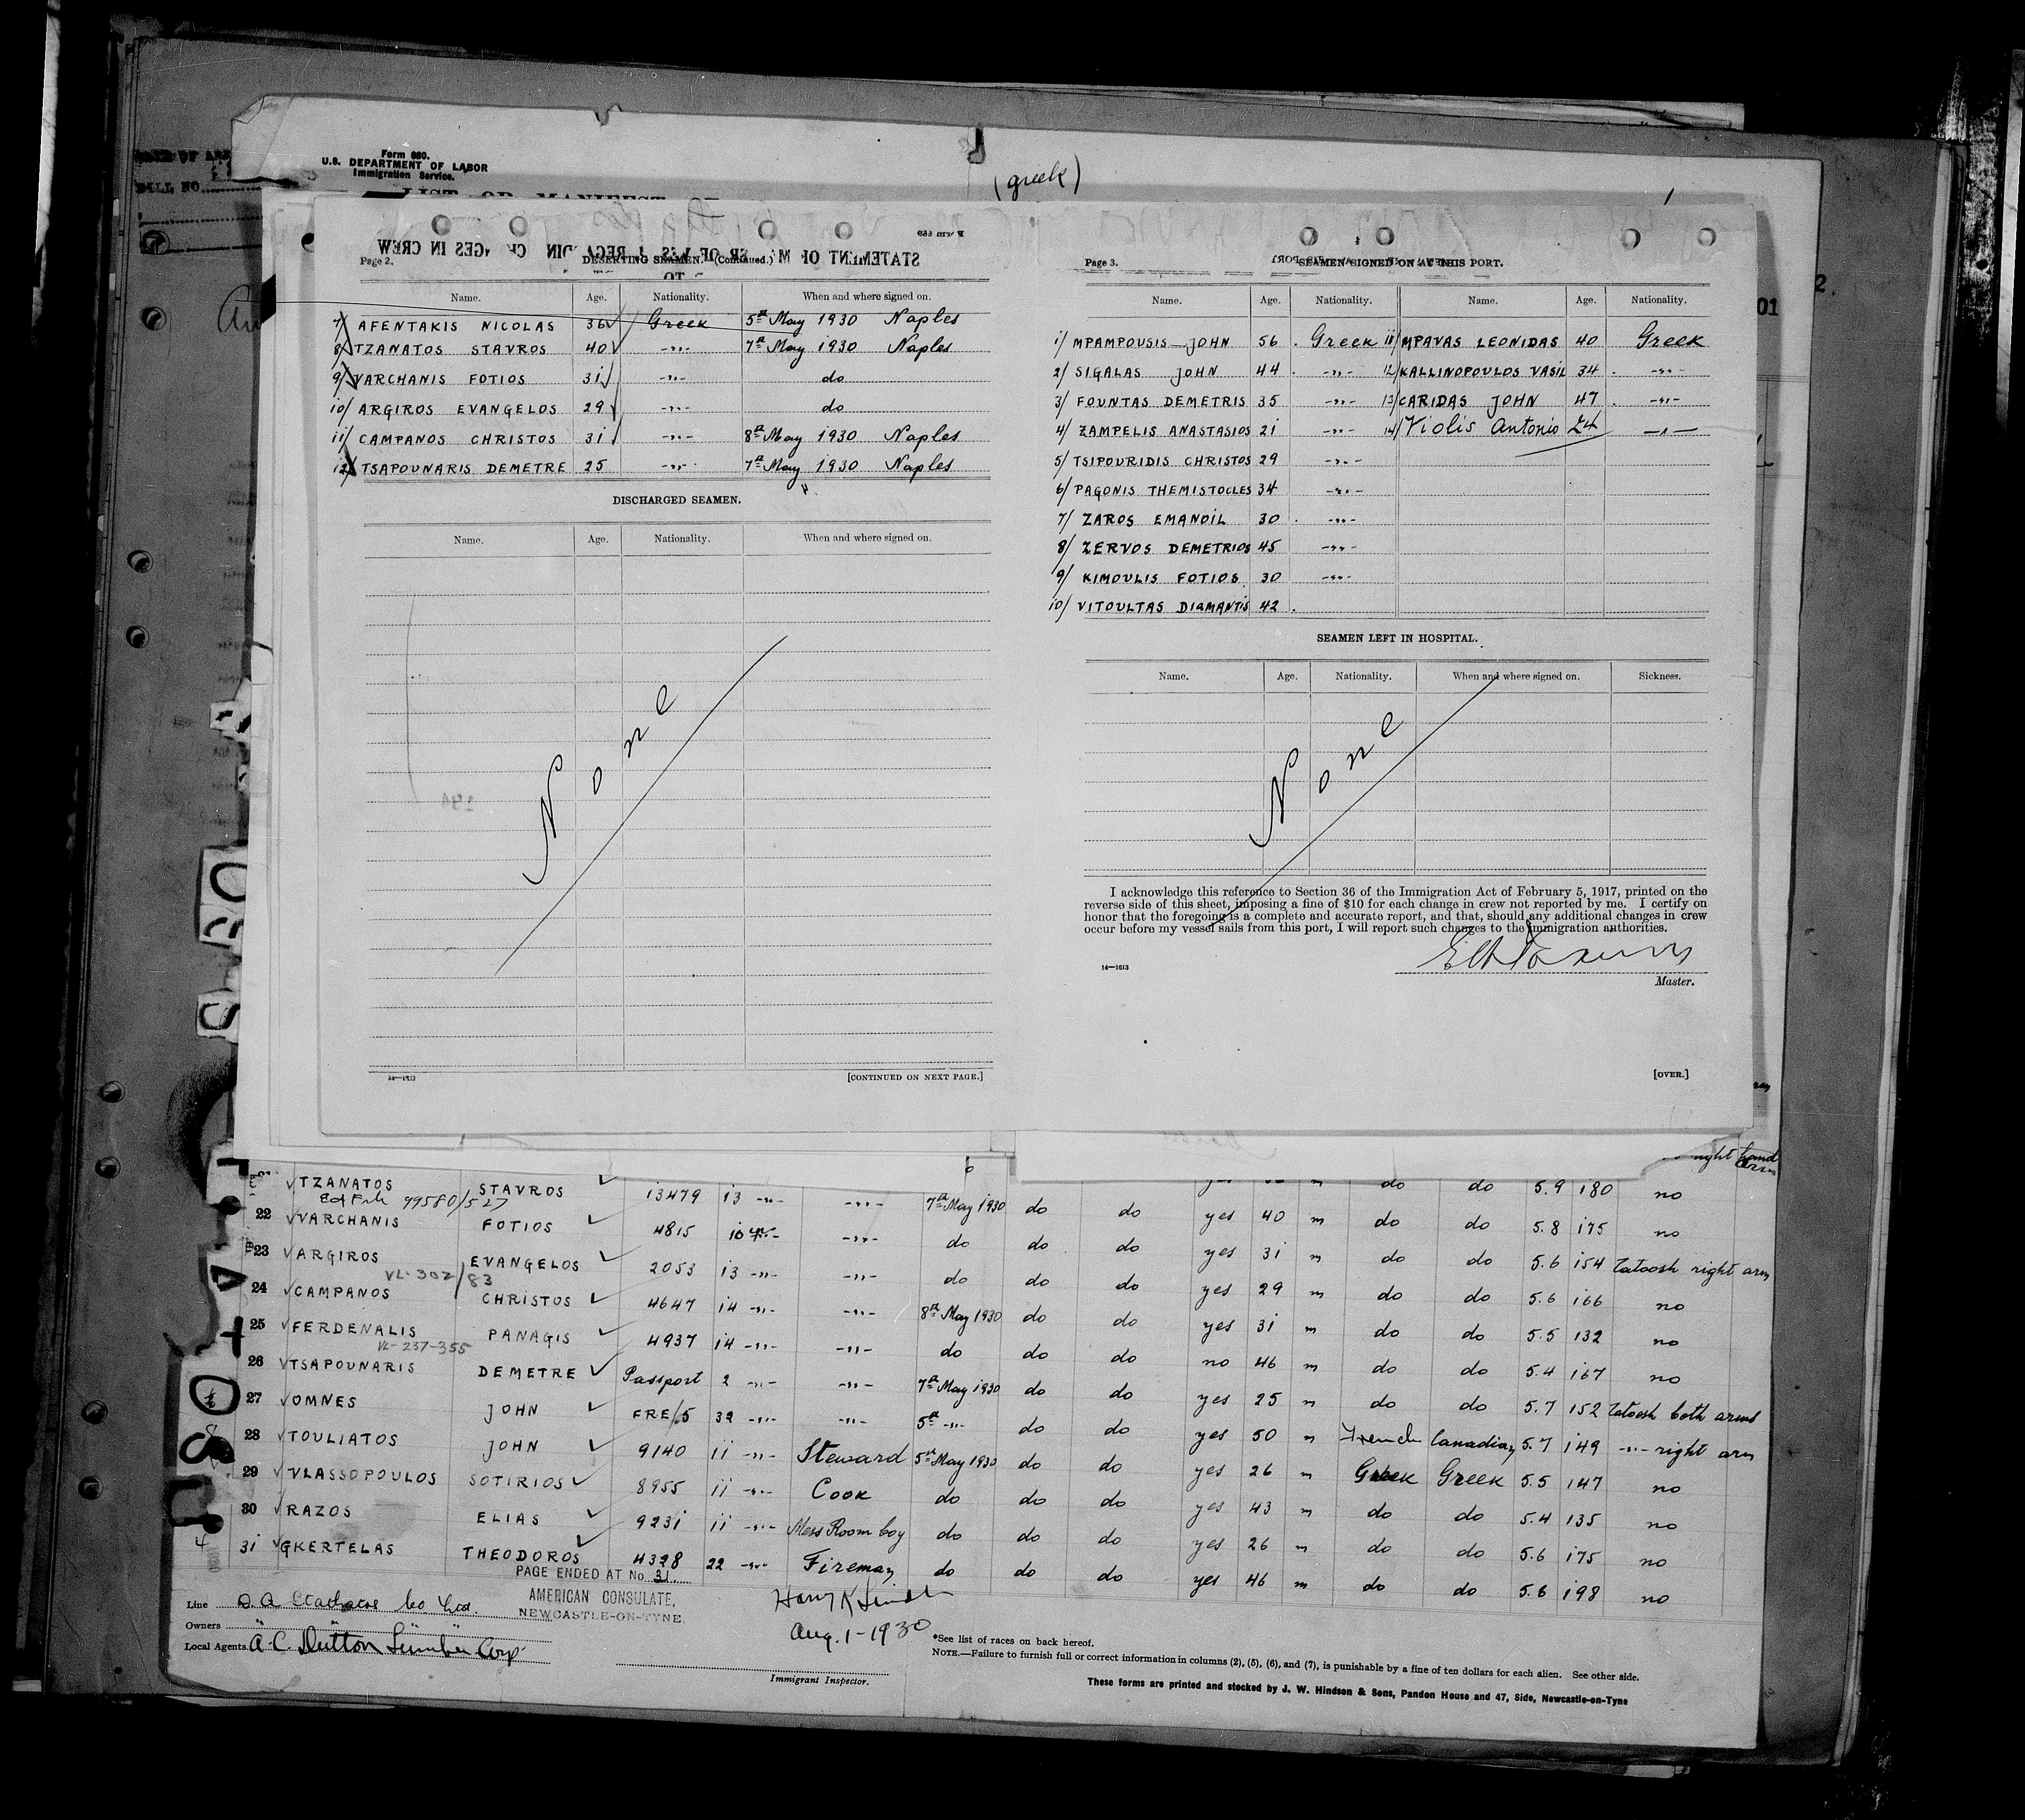 Form 680.
U.S. DEPARTMENT OF LABOR
Immigration Service.
LIST OR MANIFEST
(greek)
Page 2.
DESERTING SEAMEN. (Continued.)
Name. Age. Nationality. When and where signed on.
7/ AFENTAKIS NICOLAS 36 Greek 5th May 1930 Naples
8/ TZANATOS STAVROS 40 -"- 7th May 1930 Naples
9/ VARCHANIS FOTIOS 31 -"- do
10/ ARGIROS EVANGELOS 29 -"- do
11/ CAMPANOS CHRISTOS 31 -"- 8th May 1930 Naples
12/ TSAPOUNARIS DEMETRE 25 -"- 7th May 1930 Naples
DISCHARGED SEAMEN.
Name. Age. Nationality. When and where signed on.
None
14—1613
[CONTINUED ON NEXT PAGE.]
Page 3.
SEAMEN SIGNED ON AT THIS PORT.
Name. Age. Nationality. Name. Age. Nationality.
1/ MPAMPOUSIS JOHN 56 Greek 11/ MPAVAS LEONIDAS 40 Greek
2/ SIGALAS JOHN 44 -"- 12/ KALLINOPOULOS VASIL 34 -"-
3/ FOUNTAS DEMETRIS 35 -"- 13/ CARIDAS JOHN 47 -"-
4/ ZAMPELIS ANASTASIOS 21 -"- 14/ Violis Antonio 24 -"-
5/ TSIPOURIDIS CHRISTOS 29 -"-
6/ PAGONIS THEMISTOCLES 34 -"-
7/ ZAROS EMANOIL 30 -"-
8/ ZERVOS DEMETRIOS 45 -"-
9/ KIMOULIS FOTIOS 30 -"-
10/ VITOULTAS DIAMANTIS 42
SEAMEN LEFT IN HOSPITAL.
Name. Age. Nationality. When and where signed on. Sickness.
None
I acknowledge this reference to Section 36 of the Immigration Act of February 5, 1917, printed on the
reverse side of this sheet, imposing a fine of $10 for each change in crew not reported by me. I certify on
honor that the foregoing is a complete and accurate report, and that, should any additional changes in crew
occur before my vessel sails from this port, I will report such changes to the immigration authorities.
14—1613
Master.
[OVER.]
right hand
arm
TZANATOS STAVROS 13479 13 -"- -"- 7th May 1930 do do yes 40 m do do 5.9 180 no
99580/527
22 VARCHANIS FOTIOS 4815 10 -"- -"- do do do yes 31 m do do 5.8 175 no
23 ARGIROS EVANGELOS 2053 13 -"- -"- do do do yes 29 m do do 5.6 154 Tatoosh right arm
VL-302/83
24 CAMPANOS CHRISTOS 4647 14 -"- -"- 8th May 1930 do do yes 31 m do do 5.6 166 no
25 FERDENALIS PANAGIS 4937 14 -"- -"- do do do no 46 m do do 5.5 132 no
VL-237-355
26 TSAPOUNARIS DEMETRE Passport 2 -"- -"- 7th May 1930 do do yes 25 m do do 5.4 167 no
27 OMNES JOHN FRE/.5 32 -"- -"- 5th -"- do do yes 50 m French Canadian 5.7 152 Tatoosh both arms
28 TOULIATOS JOHN 9140 11 -"- Steward 5th May 1930 do do yes 26 m Greek Greek 5.7 149 -"- right arm
29 VLASSOPOULOS SOTIRIOS 8955 11 -"- Cook do do do yes 43 m do do 5.5 147 no
30 RAZOS ELIAS 9231 11 -"- Mess Room boy do do do yes 26 m do do 5.4 135 no
31 GKERTELAS THEODOROS 4328 22 -"- Fireman do do do yes 46 m do do 5.6 175 no
5.6 198 no
PAGE ENDED AT No. 31
AMERICAN CONSULATE,
NEWCASTLE-ON-TYNE.
Aug. 1-1930
Line
Owners
Local Agents. A.C. Dutton Lumber Corp.
Immigrant Inspector.
*See list of races on back hereof.
NOTE.—Failure to furnish full or correct information in columns (2), (5), (6), and (7), is punishable by a fine of ten dollars for each alien. See other side.
These forms are printed and stocked by J. W. Hindson & Sons, Pandon House and 47, Side, Newcastle-on-Tyne